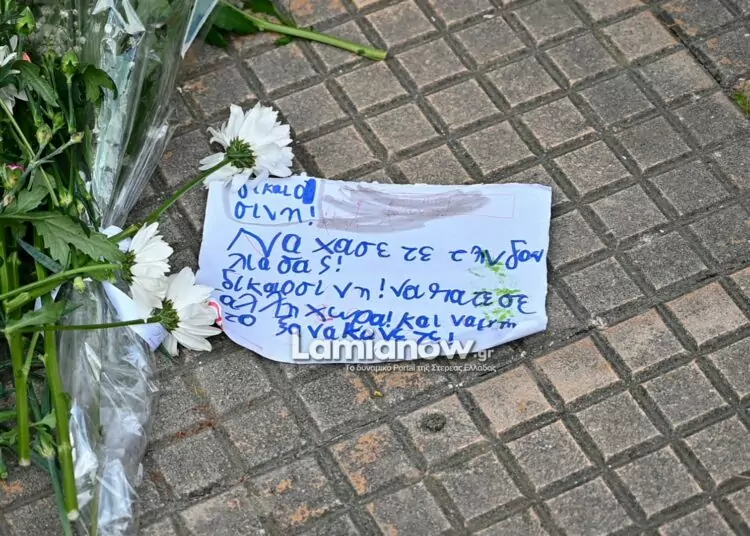 δικαιο
σινη!
Να χάσε τε την δου
λια σας!
δικαιοσι νη! να πατε σε
αλλη χωρα! και να μην
το ξα να κανε τε!
Lamianow.gr
Το δυναμικό Portal της Στερεάς Ελλάδας